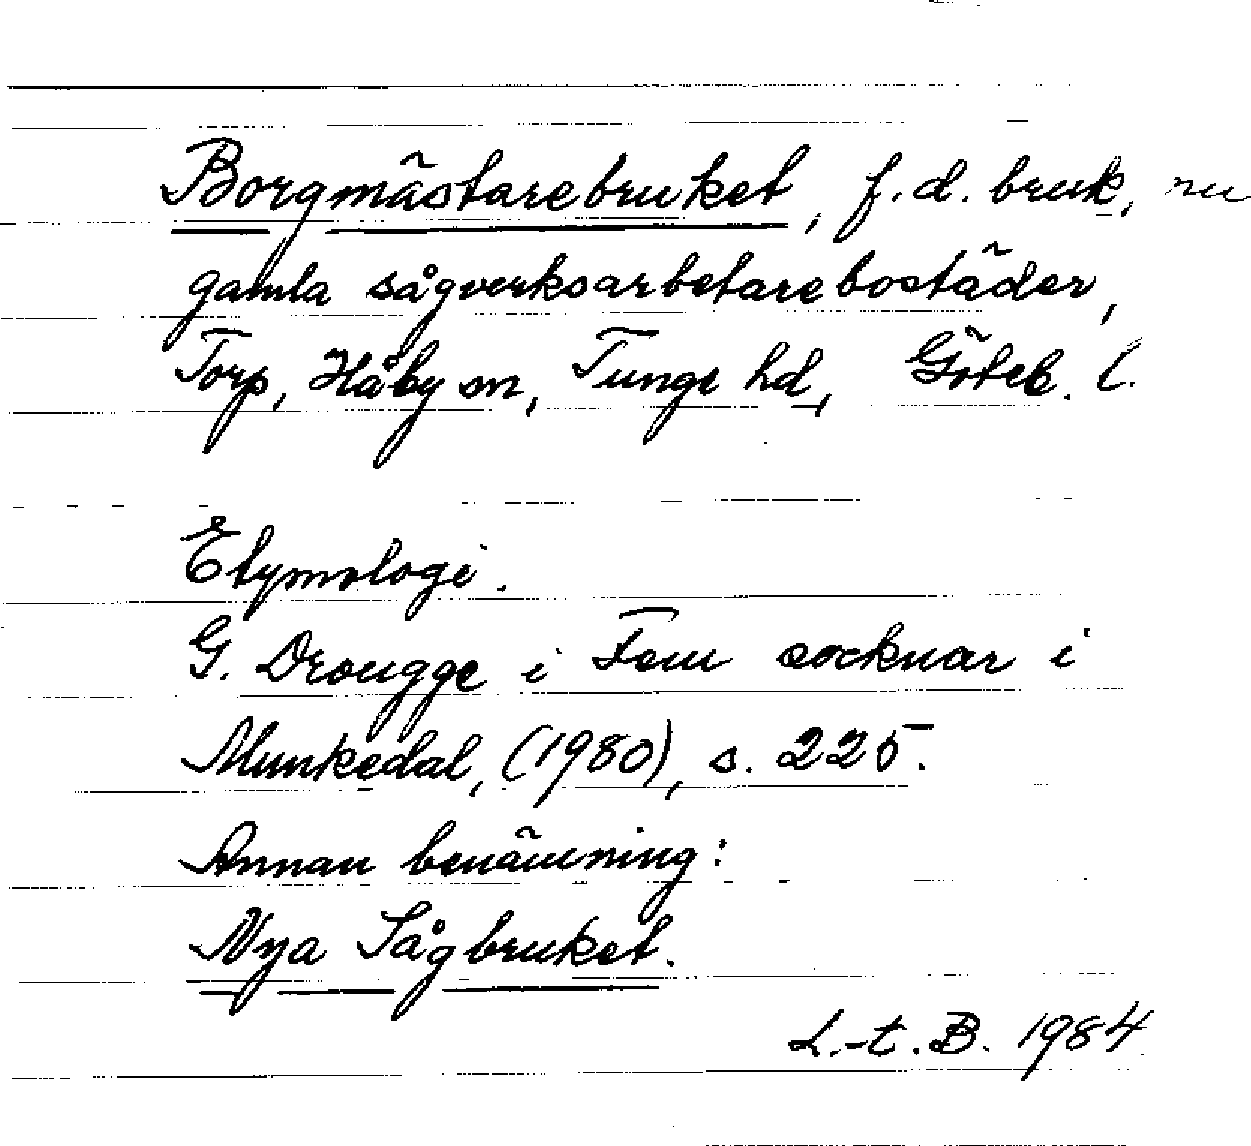 Borgmästarebruket, f.d. bruk, nu
gamla sågverksarbetarebostäder,
Torp, Håby sn, Tunge hd, Göteb. l.
Etymologi.
G. Drougge i Fem socknar i
Munkedal, (1980), s. 225.
Annan benämning:
Nya Sågbruket.
L.-t. B. 1984